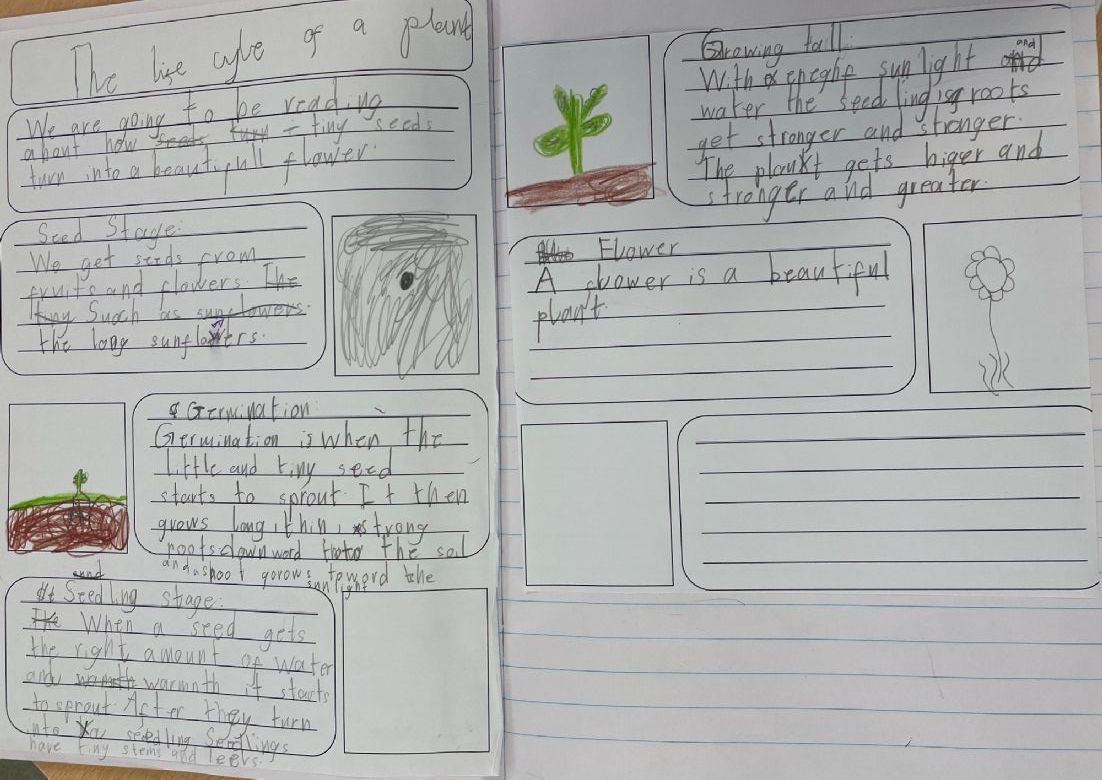 The life cycle of a plant
We are going to be reading
about how tiny seeds
turn into a beautifull flower.
Seed Stage:
We get seeds from
fruits and flowers. The
tiny Suach as sunflowers.
the long sunflowers.
Germination:
Germination is when the
little and tiny seed
starts to sprout. It then
grows long, thin, strong
roots downword into the soil
and a shoot gorows toword the
sunlight
and
Seedling stage:
When a seed gets
the right amount of water
and warmth warmnth it starts
to sprout. After they turn
into a seedling. Seedlings
have tiny stems and leevs.
Growing tall:
With eneghf sunlight and
water the seedling's roots
get stronger and stronger.
The plant gets biger and
stronger and greater.
Flower
A flower is a beautiful
plant.